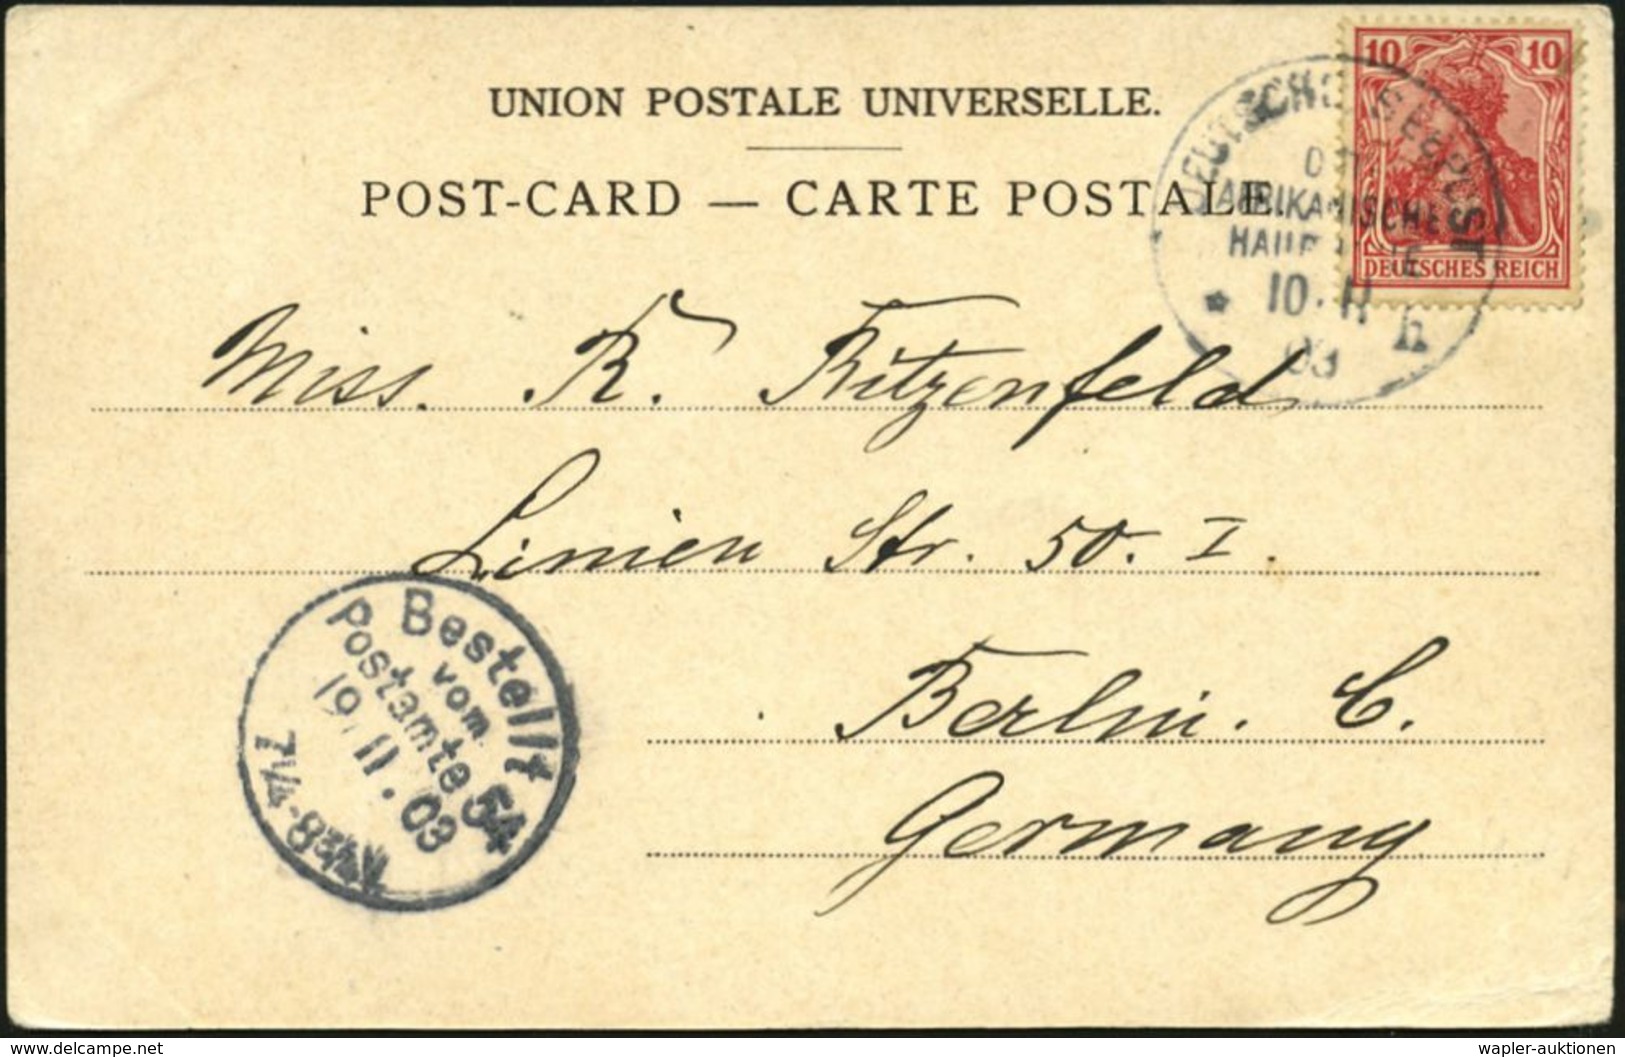 UNION POSTALE UNIVERSELLE.
POST-CARD — CARTE POSTALE.
10 10
DEUTSCHES REICH
DEUTSCHE SEEPOST
AFRIKANISCHE
10. 11
03
h
Miss. R. Ritzenfeld
Linien Str. 50. I.
Berlin. C.
Germany
Bestellt
vom
Postamte 54
19. 11. 03
7¼-8¾V.
delcampe.net
wapler-auktionen